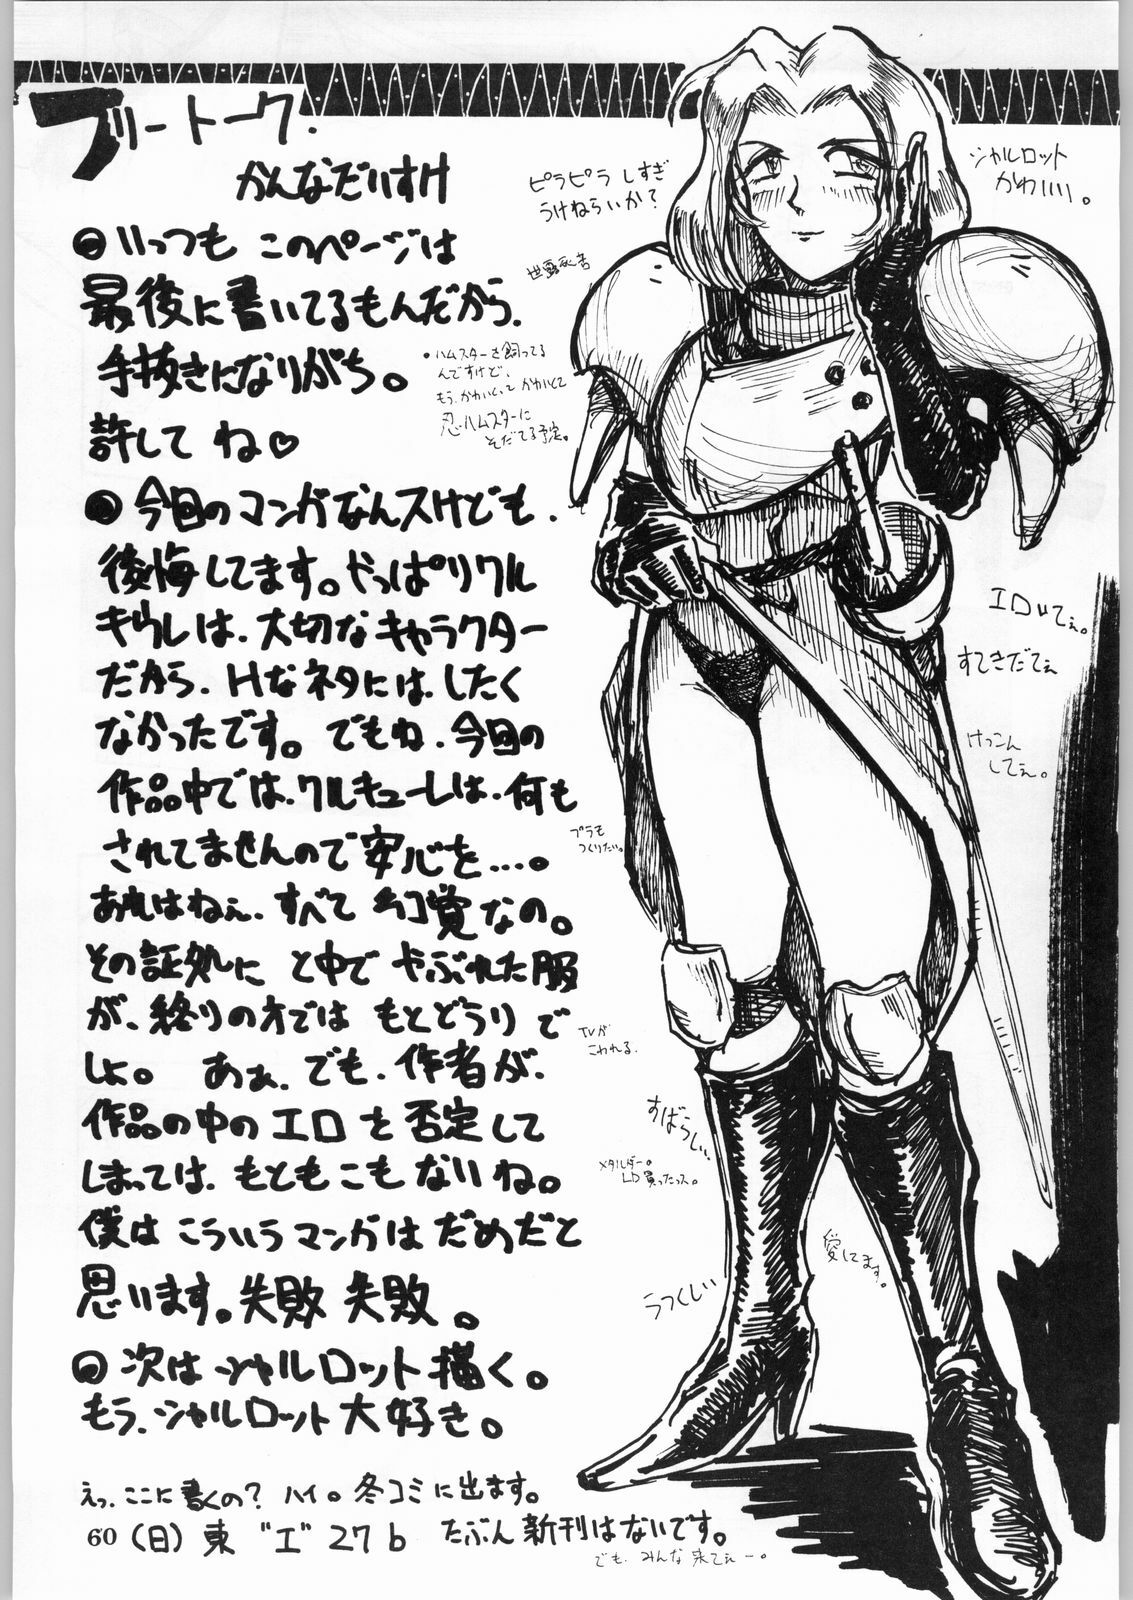 フリートーク.
かんなだいすけ
いつも このページは
最後に書いてるもんだから.
手抜きになりがち。
許して ね♡
今回のマンガなんスけども.
後悔してます。やっぱりクル
キウレは、大切なキャラクター
だから、Hなネタには、したく
なかったです。でもね、今回の
作品中では、クルキューレは、何も
されてませんので安心を…。
あれはねぇ、すべて幻覚なの。
その証処に と中で やぶれた服
が、終りの方では もとどうりで
しょ。 あぁ、でも、作者が、
作品の中のエロを否定して
しまっては、もともこもないね。
僕は こういうマンガは だめだと
思います。失敗 失敗。
次は シャルロット 描く。
もう、シャルロット 大好き。
えっ、ここに書くの? ハイ。冬コミに出ます。
60 (日) 東 "エ" 27b たぶん新刊はないです。
でも、みんな来てぇー。
ピラピラ しすぎ
うけねらいか?
シャルロット
かわいい。
・ハムスターを飼ってる
んですけど、
もう、かわいくって かわいくて
忍ハムスターに
そだてる予定。
エロいてぇ。
すてきだてぇ
けっこん
してぇ。
プラモ
つくりたい。
TVが
こわれる.
すばらしい、
メタルダー。
LD買ったっス。
愛してます。
うつくしい